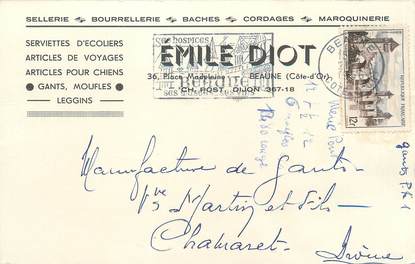 SELLERIE BOURRELLERIE BACHES CORDAGES MAROQUINERIE
SERVIETTES D'ECOLIERS
ARTICLES DE VOYAGES
ARTICLES POUR CHIENS
GANTS, MOUFLES
LEGGINS
EMILE DIOT
36, Place Madeleine BEAUNE (Côte-d'Or)
CH. POST. DIJON 367-18
SES HOSPICES
BEAUNE
12F
Manufacture de gants
Martin et fils
Chamaret
Drôme